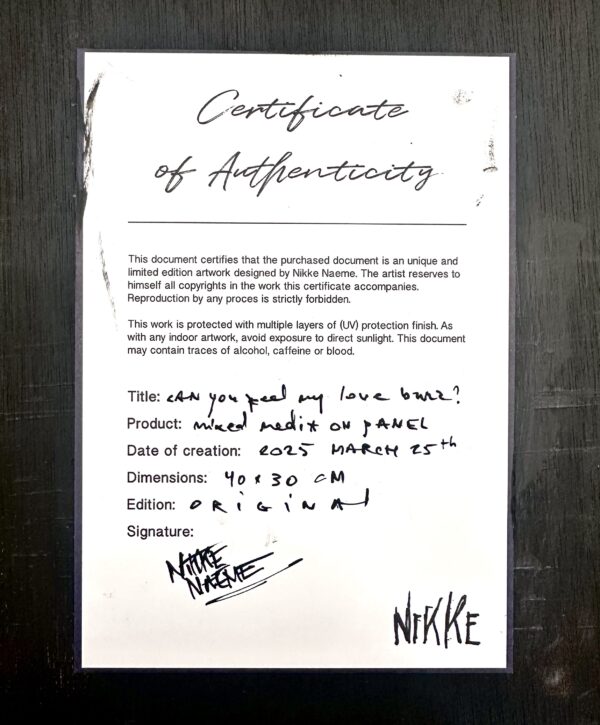 Certificate
of Authenticity
This document certifies that the purchased document is an unique and
limited edition artwork designed by Nikke Naeme. The artist reserves to
himself all copyrights in the work this certificate accompanies.
Reproduction by any proces is strictly forbidden.
This work is protected with multiple layers of (UV) protection finish. As
with any indoor artwork, avoid exposure to direct sunlight. This document
may contain traces of alcohol, caffeine or blood.
Title: CAN you feel my love buzz?
Product: mixed media ON PANEL
Date of creation: 2025 MARCH 25th
Dimensions: 40 x 30 CM
Edition: ORiGiNAl
Signature:
NIKKE
NAEME
NIKKE